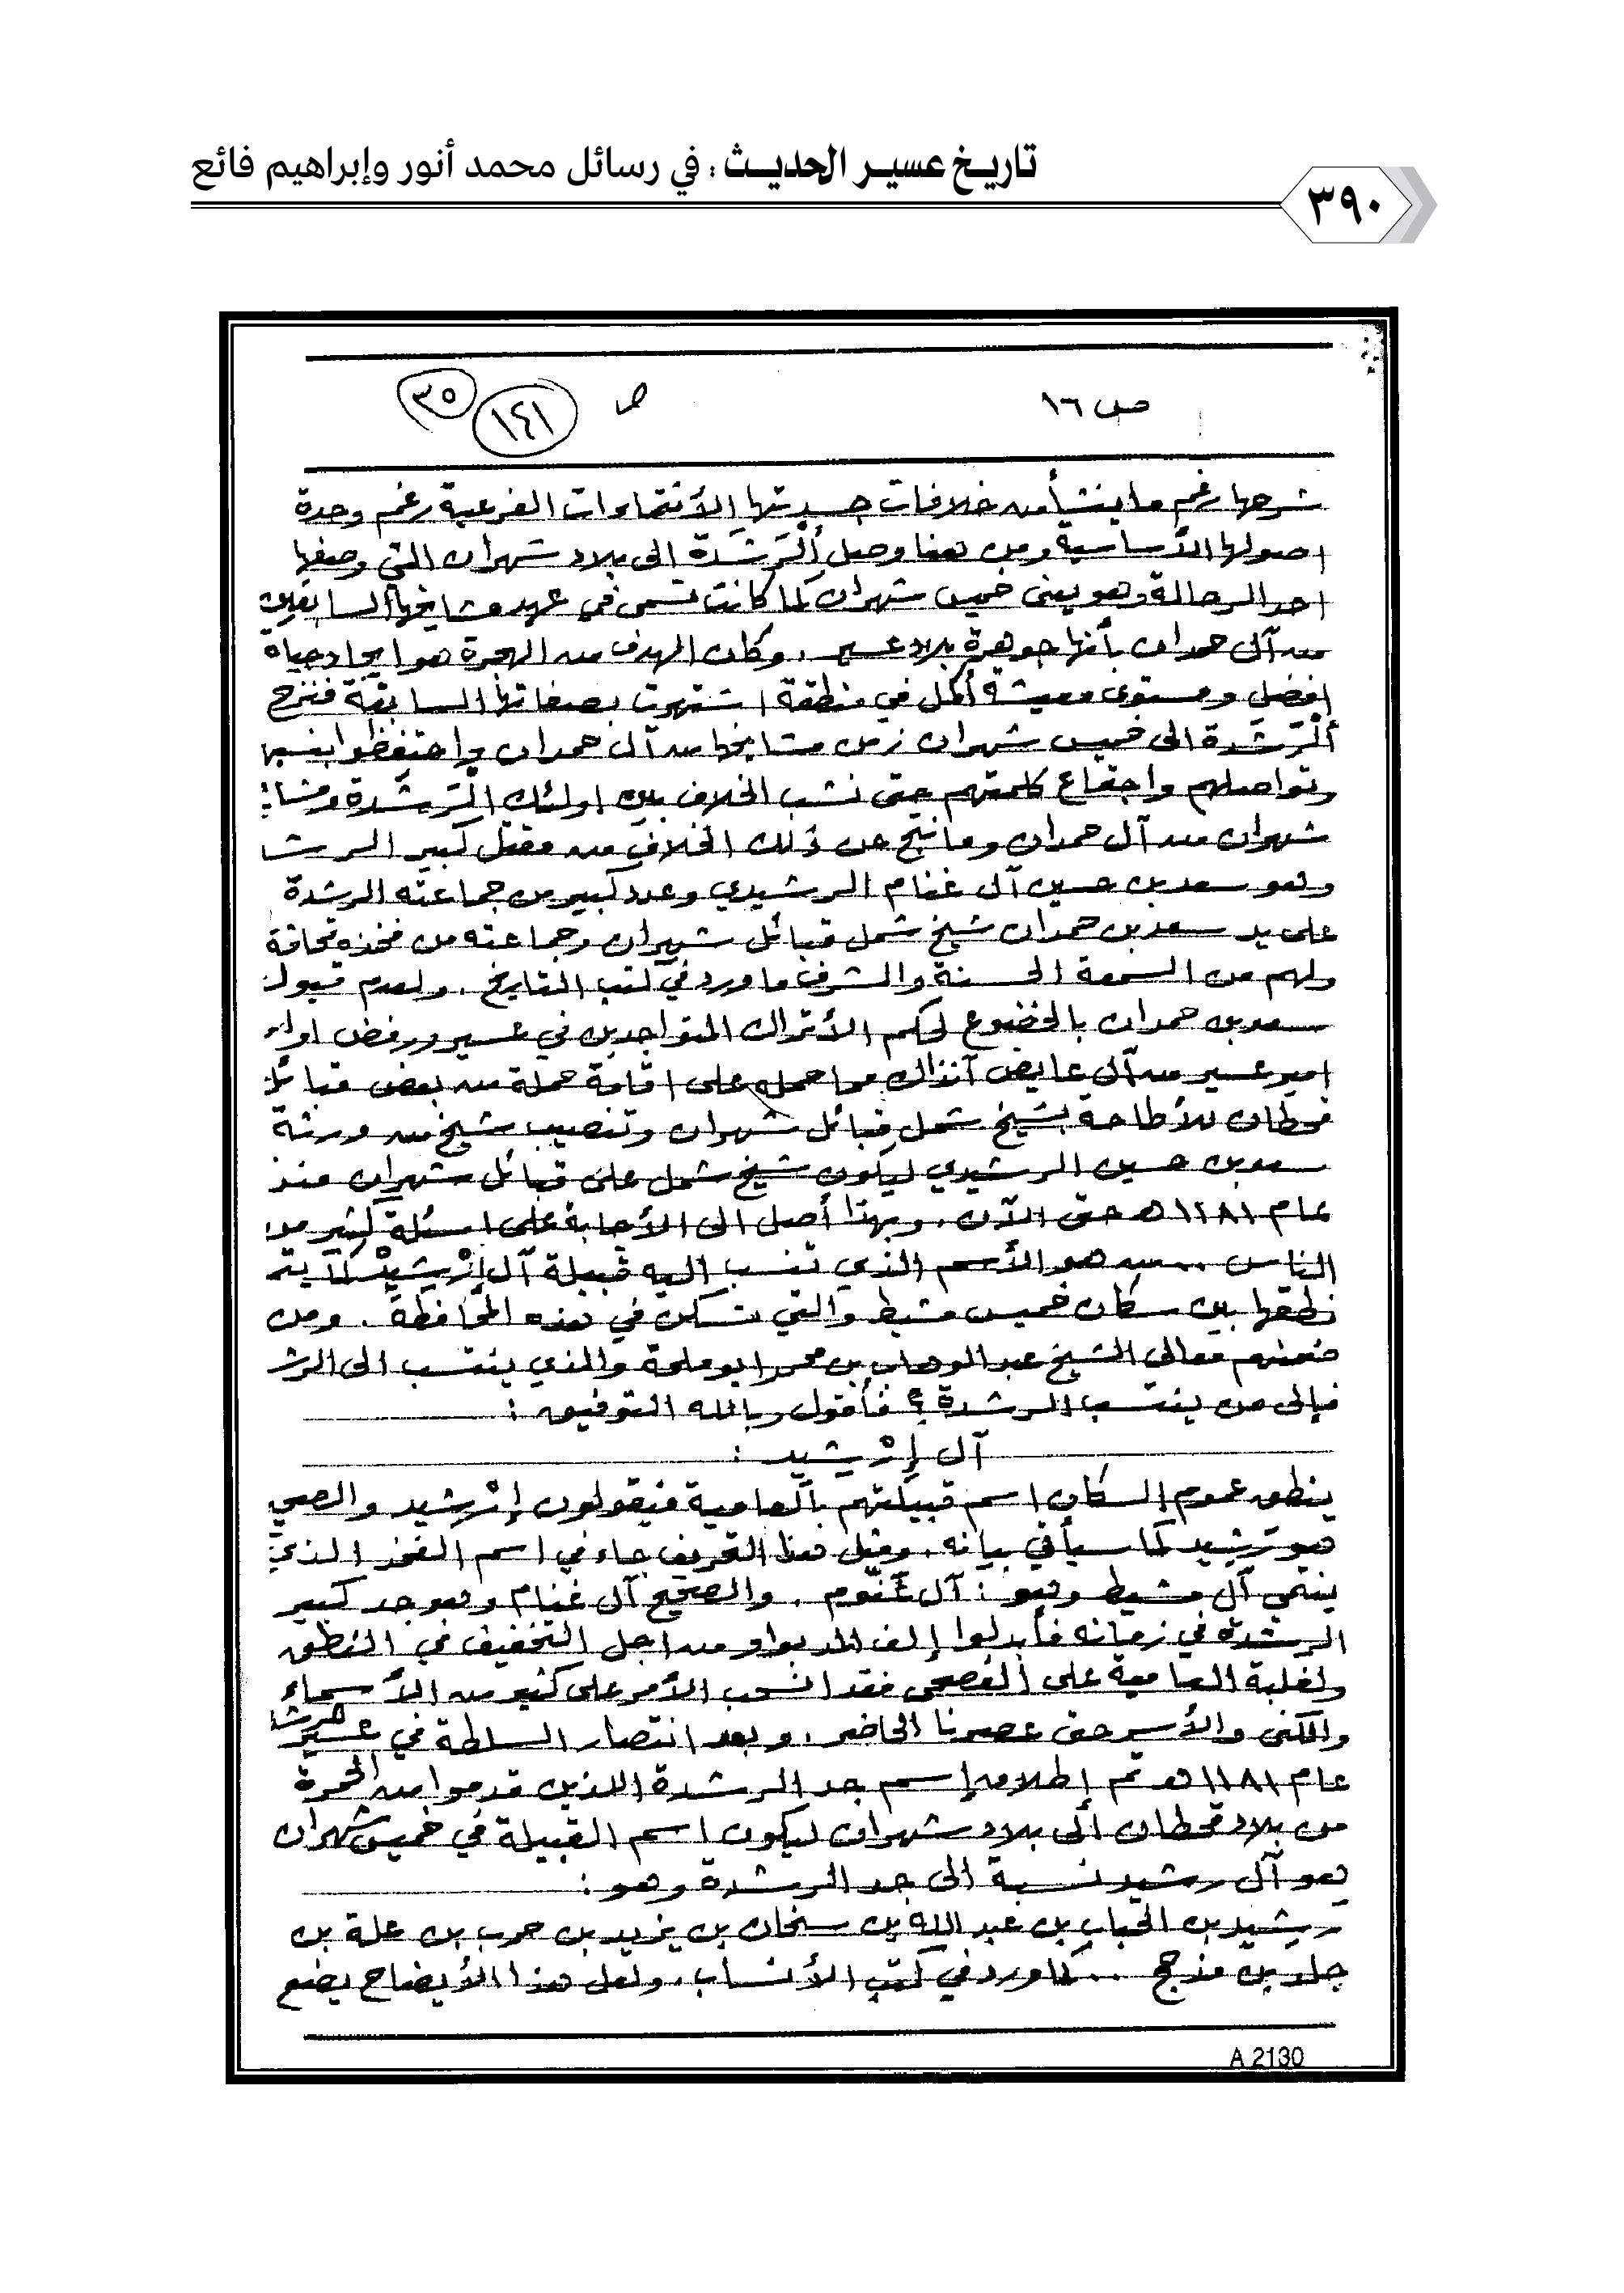 تاريخ عسير الحديث : في رسائل محمد أنور وإبراهيم فائع
٣٩٠
ص ١٦
ص
١٤١
٣٥
شرحها رغم ما ينشأ من خلافات جسدتها الأنتماءات الفرعية رغم وحدة
اصولها الأساسية ومن هنا وصل ألرشدة الى بلاد شهران التي وصفها
احد الرحالة وهو يعني خميس شهران كما كانت تسمى في عهد مشايخها السابقين
من آل حمدان بأنها جوهرة بلاد عسير . وكان الهدف من الهجرة هو ايجاد حياة
افضل ومستوى معيشة أكمل في منطقة اشتهرت بصفاتها السابقة فنزح
ألرشدة الى خميس شهران زمن مشايخها من آل حمدان واحتفظوا بنسبها
وتواصلهم واجتماع كلمتهم حتى نشب الخلاف بين اولئك الرشدة ومشا
شهران من آل حمدان وما نتج عن ذلك الخلاف من مقتل كبير الرشد
وهو سعد بن حسين آل غنام الرشيدي وعدد كبير من جماعته الرشدة
على يد سعد بن حمدان شيخ شمل قبائل شهران وجماعته من فخذه قحافة
ولهم من السمعة الحسنة والشرف ما ورد في كتب التاريخ . ولعدم قبول
سعد بن حمدان بالخضوع لحكم الأتراك المتواجدين في عسير ورفض اوامر
امير عسير من آل عايض آنذاك مما حمله على اقامة حملة من بعض قبائل
قحطان للأطاحة بشيخ شمل قبائل شهران وتنصيب شيخ من ورثة
سعد بن حسين الرشيدي ليكون شيخ شمل على قبائل شهران منذ
عام ١٢٨١ هـ حتى الآن . وبهذا أصل الى الأجابة على اسئلة كثير من
الناس .. من هو الأسم الذي تنسب اليه قبيلة آل إرْشيدْ كما يتم
نطقها بين سكان خميس مشيط والتي تسكن في هذه المحافظة . ومن
ضمنهم معالي الشيخ عبد الوهاب بن محمد ابو ملحة والذي ينتسب الى الرشد
فإلى من ينتسب الرشدة ؟ فأقول وبالله التوفيق :
آل إرْشيد :
ينطق عموم السكان اسم قبيلتهم بالعامية فيقولون إرْشيد والصحي
هو رشيد كما سيأتي بيانه . ومثل هذا التحريف جاء في اسم الفخذ الذي
ينتمي آل مشيط وهو : آل غنّوم . والصحيح آل غنام وهو جد كبير
الرشدة في زمانه فأبدلوا إلف المد بواو من اجل التخفيف في النطق
ولغلبة العامية على الفصحى فقد انسحب الأمر على كثير من الأسماء
والكنى والأسر حتى عصرنا الحاضر . وبعد انتصار السلطة في عسير
عام ١٢٨١ هـ تم إطلاق إسم جد الرشدة اللذين قدموا من الحمرة
من بلاد قحطان الى بلاد شهران ليكون اسم القبيلة في خميس شهران
هو آل رشيد نسبة الى جد الرشدة وهو :
رشيد بن الحباب بن عبد الله بن سنحان بن يزيد بن حرب بن علة بن
جلد بن مذحج .. كما ورد في كتب الأنساب . ولعل هذا الأيضاح يضع
A 2130